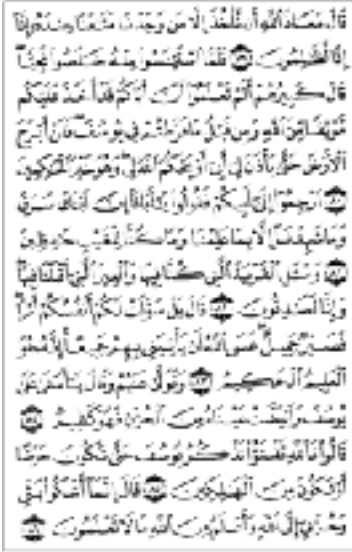 قَالَ مَعَاذَ اللَّهِ أَن نَّأْخُذَ إِلَّا مَن وَجَدْنَا مَتَٰعَنَا عِندَهُ إِنَّا
إِذًا لَّظَٰلِمُونَ ٧٩ فَلَمَّا اسْتَيْـَٔسُوا مِنْهُ خَلَصُوا نَجِيًّا
قَالَ كَبِيرُهُمْ أَلَمْ تَعْلَمُوا أَنَّ أَبَاكُمْ قَدْ أَخَذَ عَلَيْكُم
مَّوْثِقًا مِّنَ اللَّهِ وَمِن قَبْلُ مَا فَرَّطتُمْ فِي يُوسُفَ فَلَنْ أَبْرَحَ
الْأَرْضَ حَتَّىٰ يَأْذَنَ لِي أَبِي أَوْ يَحْكُمَ اللَّهُ لِي وَهُوَ خَيْرُ الْحَٰكِمِينَ
٨٠ ارْجِعُوا إِلَىٰ أَبِيكُمْ فَقُولُوا يَٰأَبَانَا إِنَّ ابْنَكَ سَرَقَ
وَمَا شَهِدْنَا إِلَّا بِمَا عَلِمْنَا وَمَا كُنَّا لِلْغَيْبِ حَٰفِظِينَ
٨١ وَسْـَٔلِ الْقَرْيَةَ الَّتِي كُنَّا فِيهَا وَالْعِيرَ الَّتِي أَقْبَلْنَا فِيهَا
وَإِنَّا لَصَٰدِقُونَ ٨٢ قَالَ بَلْ سَوَّلَتْ لَكُمْ أَنفُسُكُمْ أَمْرًا
فَصَبْرٌ جَمِيلٌ عَسَى اللَّهُ أَن يَأْتِيَنِي بِهِمْ جَمِيعًا إِنَّهُ هُوَ
الْعَلِيمُ الْحَكِيمُ ٨٣ وَتَوَلَّىٰ عَنْهُمْ وَقَالَ يَٰأَسَفَىٰ عَلَىٰ
يُوسُفَ وَابْيَضَّتْ عَيْنَاهُ مِنَ الْحُزْنِ فَهُوَ كَظِيمٌ ٨٤
قَالُوا تَاللَّهِ تَفْتَؤُا تَذْكُرُ يُوسُفَ حَتَّىٰ تَكُونَ حَرَضًا
أَوْ تَكُونَ مِنَ الْهَٰلِكِينَ ٨٥ قَالَ إِنَّمَا أَشْكُو بَثِّي
وَحُزْنِي إِلَى اللَّهِ وَأَعْلَمُ مِنَ اللَّهِ مَا لَا تَعْلَمُونَ ٨٦